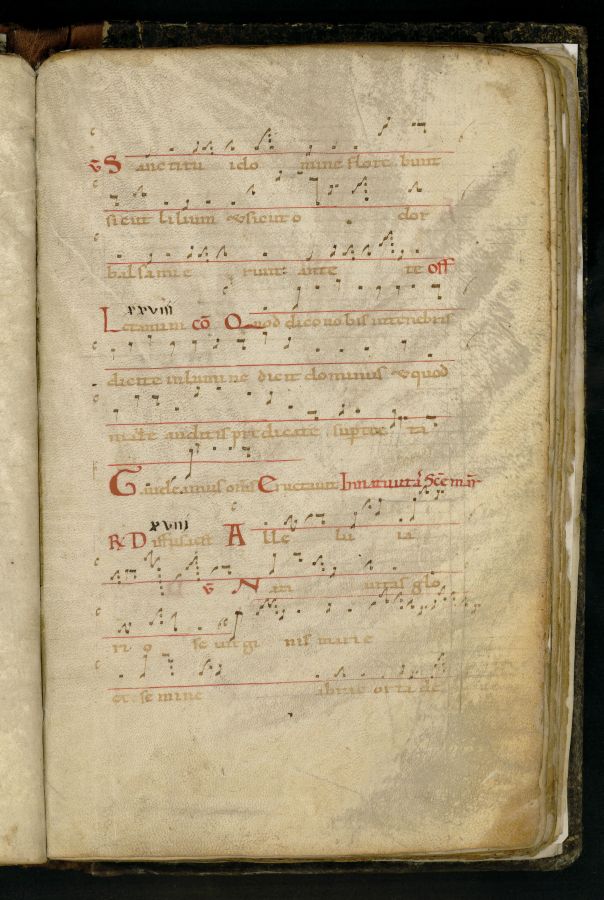 v̄ Sanctitui idomine florebunt
sicut lilium & sicut o dor
balsami erunt ante te off
Letamini xxviii cō Quod dico uobis intenebris
dicite inlumine dicit dominus & quod
inaure auditis predicate super te ta
Gaudeamus omīs Eructauit Innatiuitā Scē
R Diffusa est xviii A lle lu ia
v̄ N ati uitas glo
ri o se uirgi nis marie
ex se mine abrae orta de